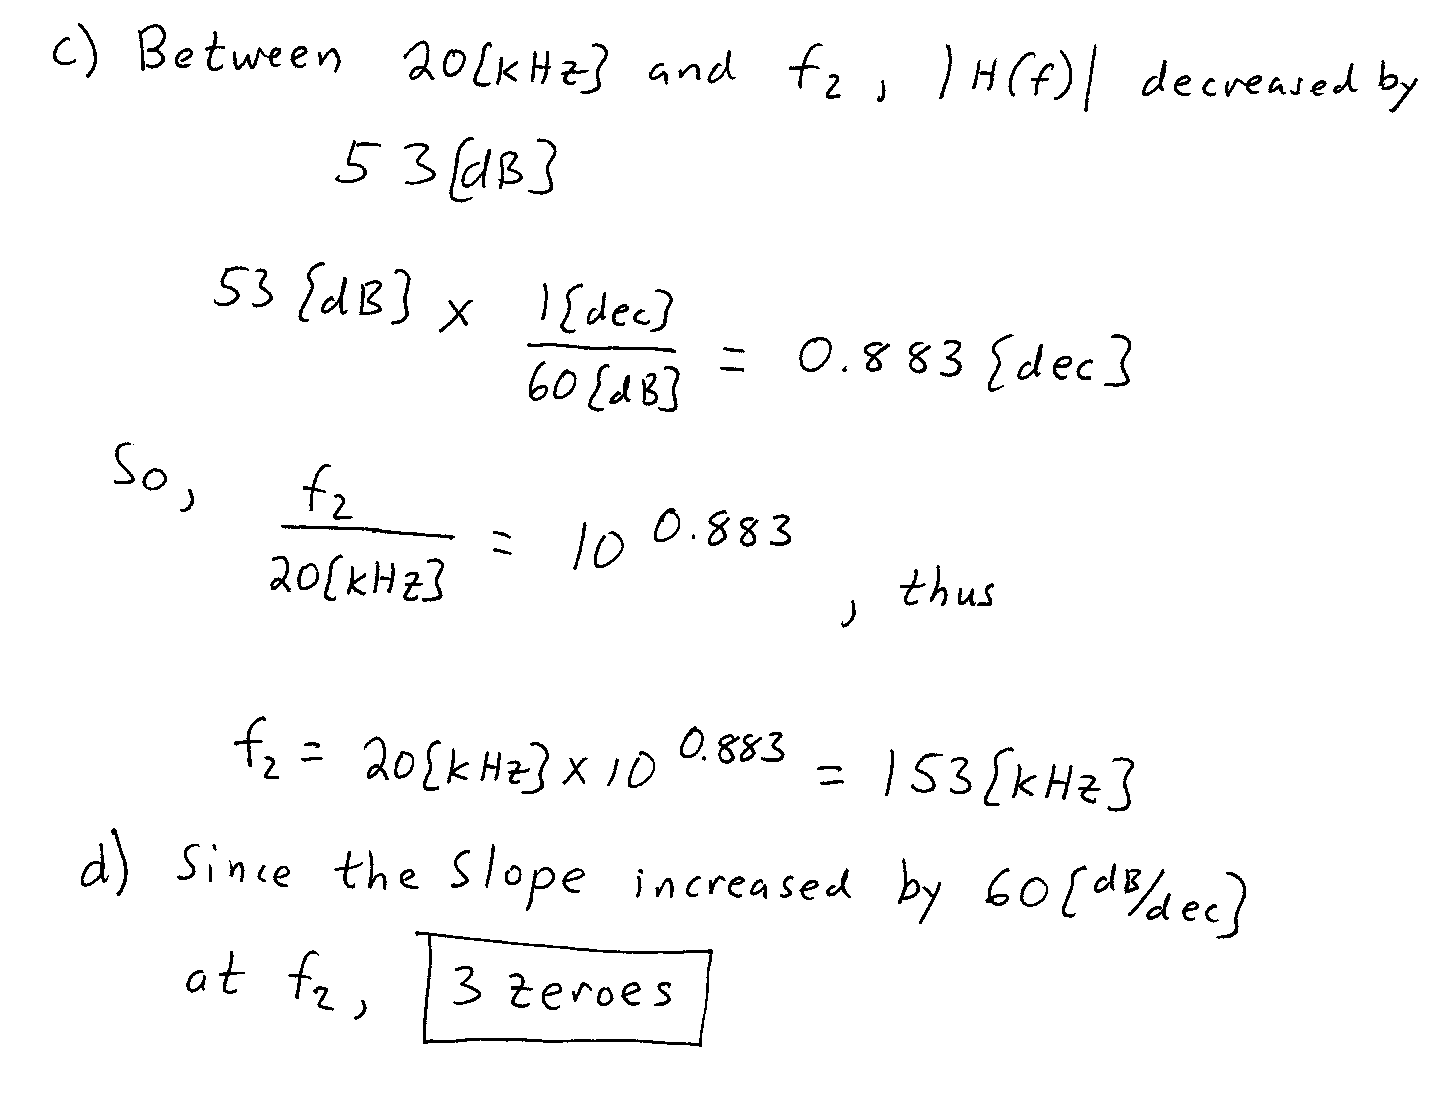 c) Between 20[kHz] and f₂, |H(f)| decreased by
53[dB]
53[dB] x 1[dec]/60[dB] = 0.883[dec]
So, f₂/20[kHz] = 10^0.883, thus
f₂ = 20[kHz] x 10^0.883 = 153[kHz]
d) Since the slope increased by 60[dB/dec]
at f₂, 3 zeroes